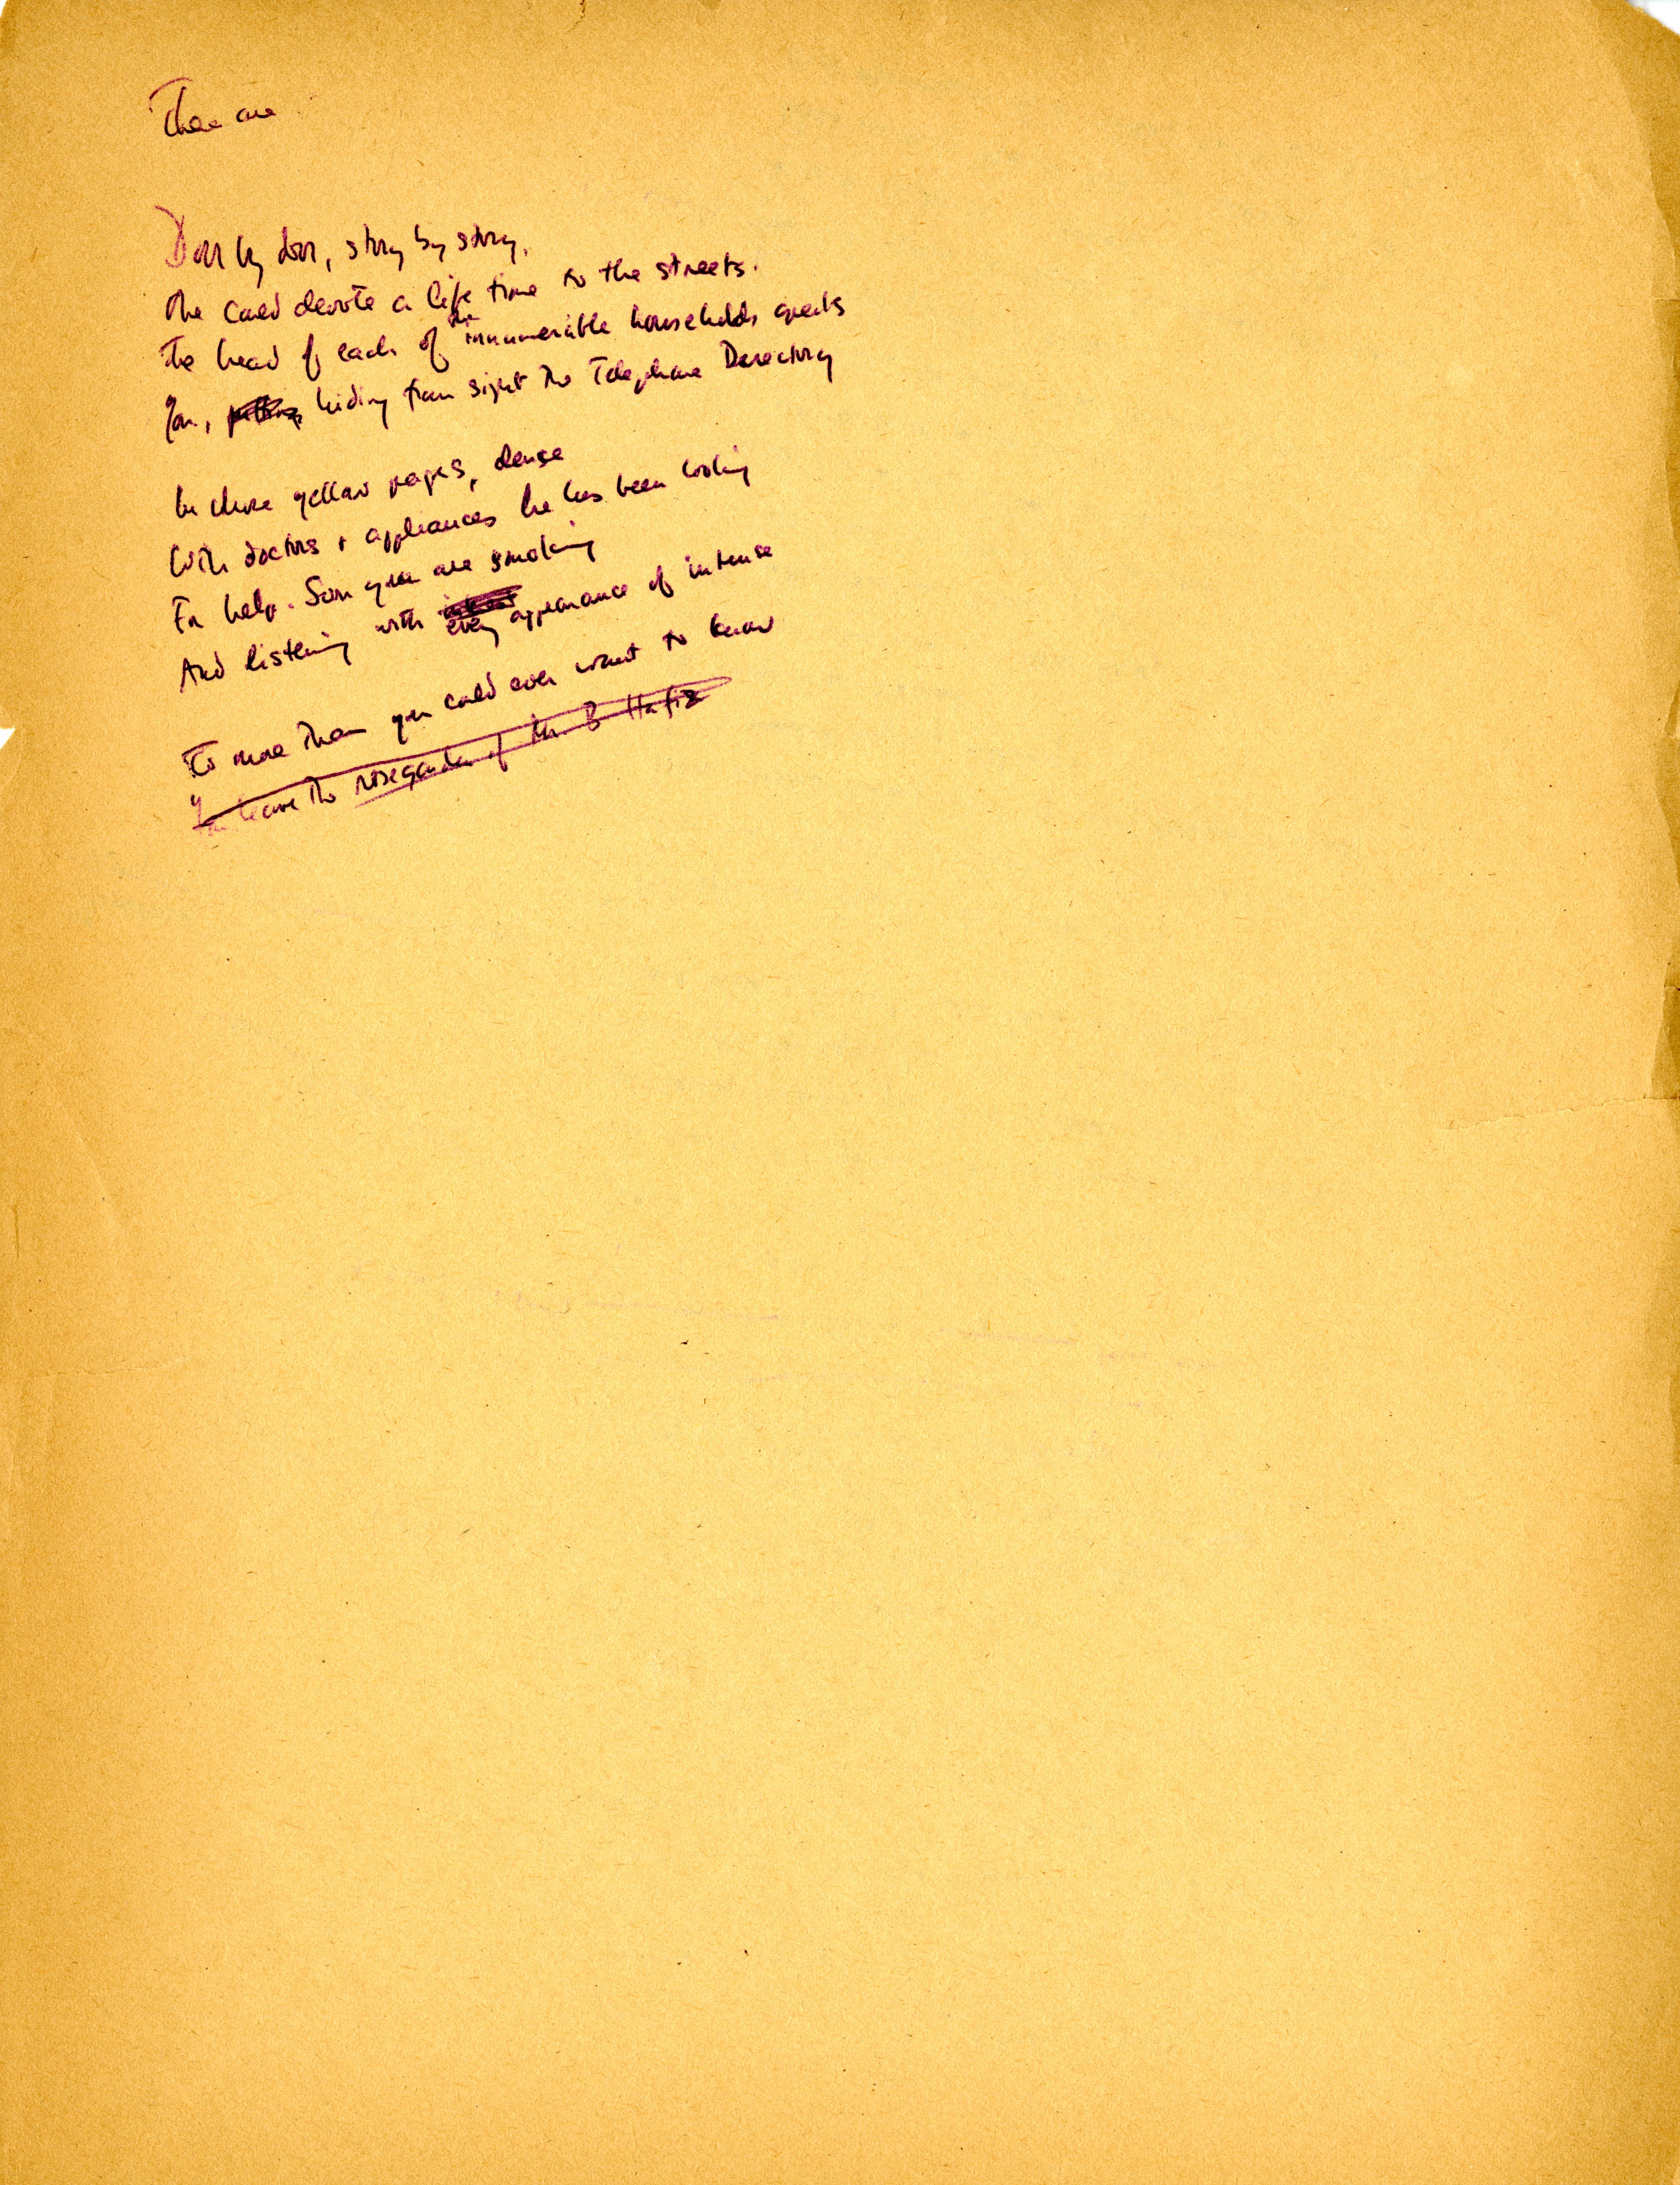 There are
Door by door, story by story.
One could devote a life time to the streets.
The head of each of the innumerable households greets
You, putting hiding from sight the Telephone Directory
In whose yellow pages, dense
With doctors + appliances he has been looking
For help. Soon you are smoking
And listening with every appearance of intense
To more than you could ever want to know
You leave the rosegarden of Mr. B Hafiz